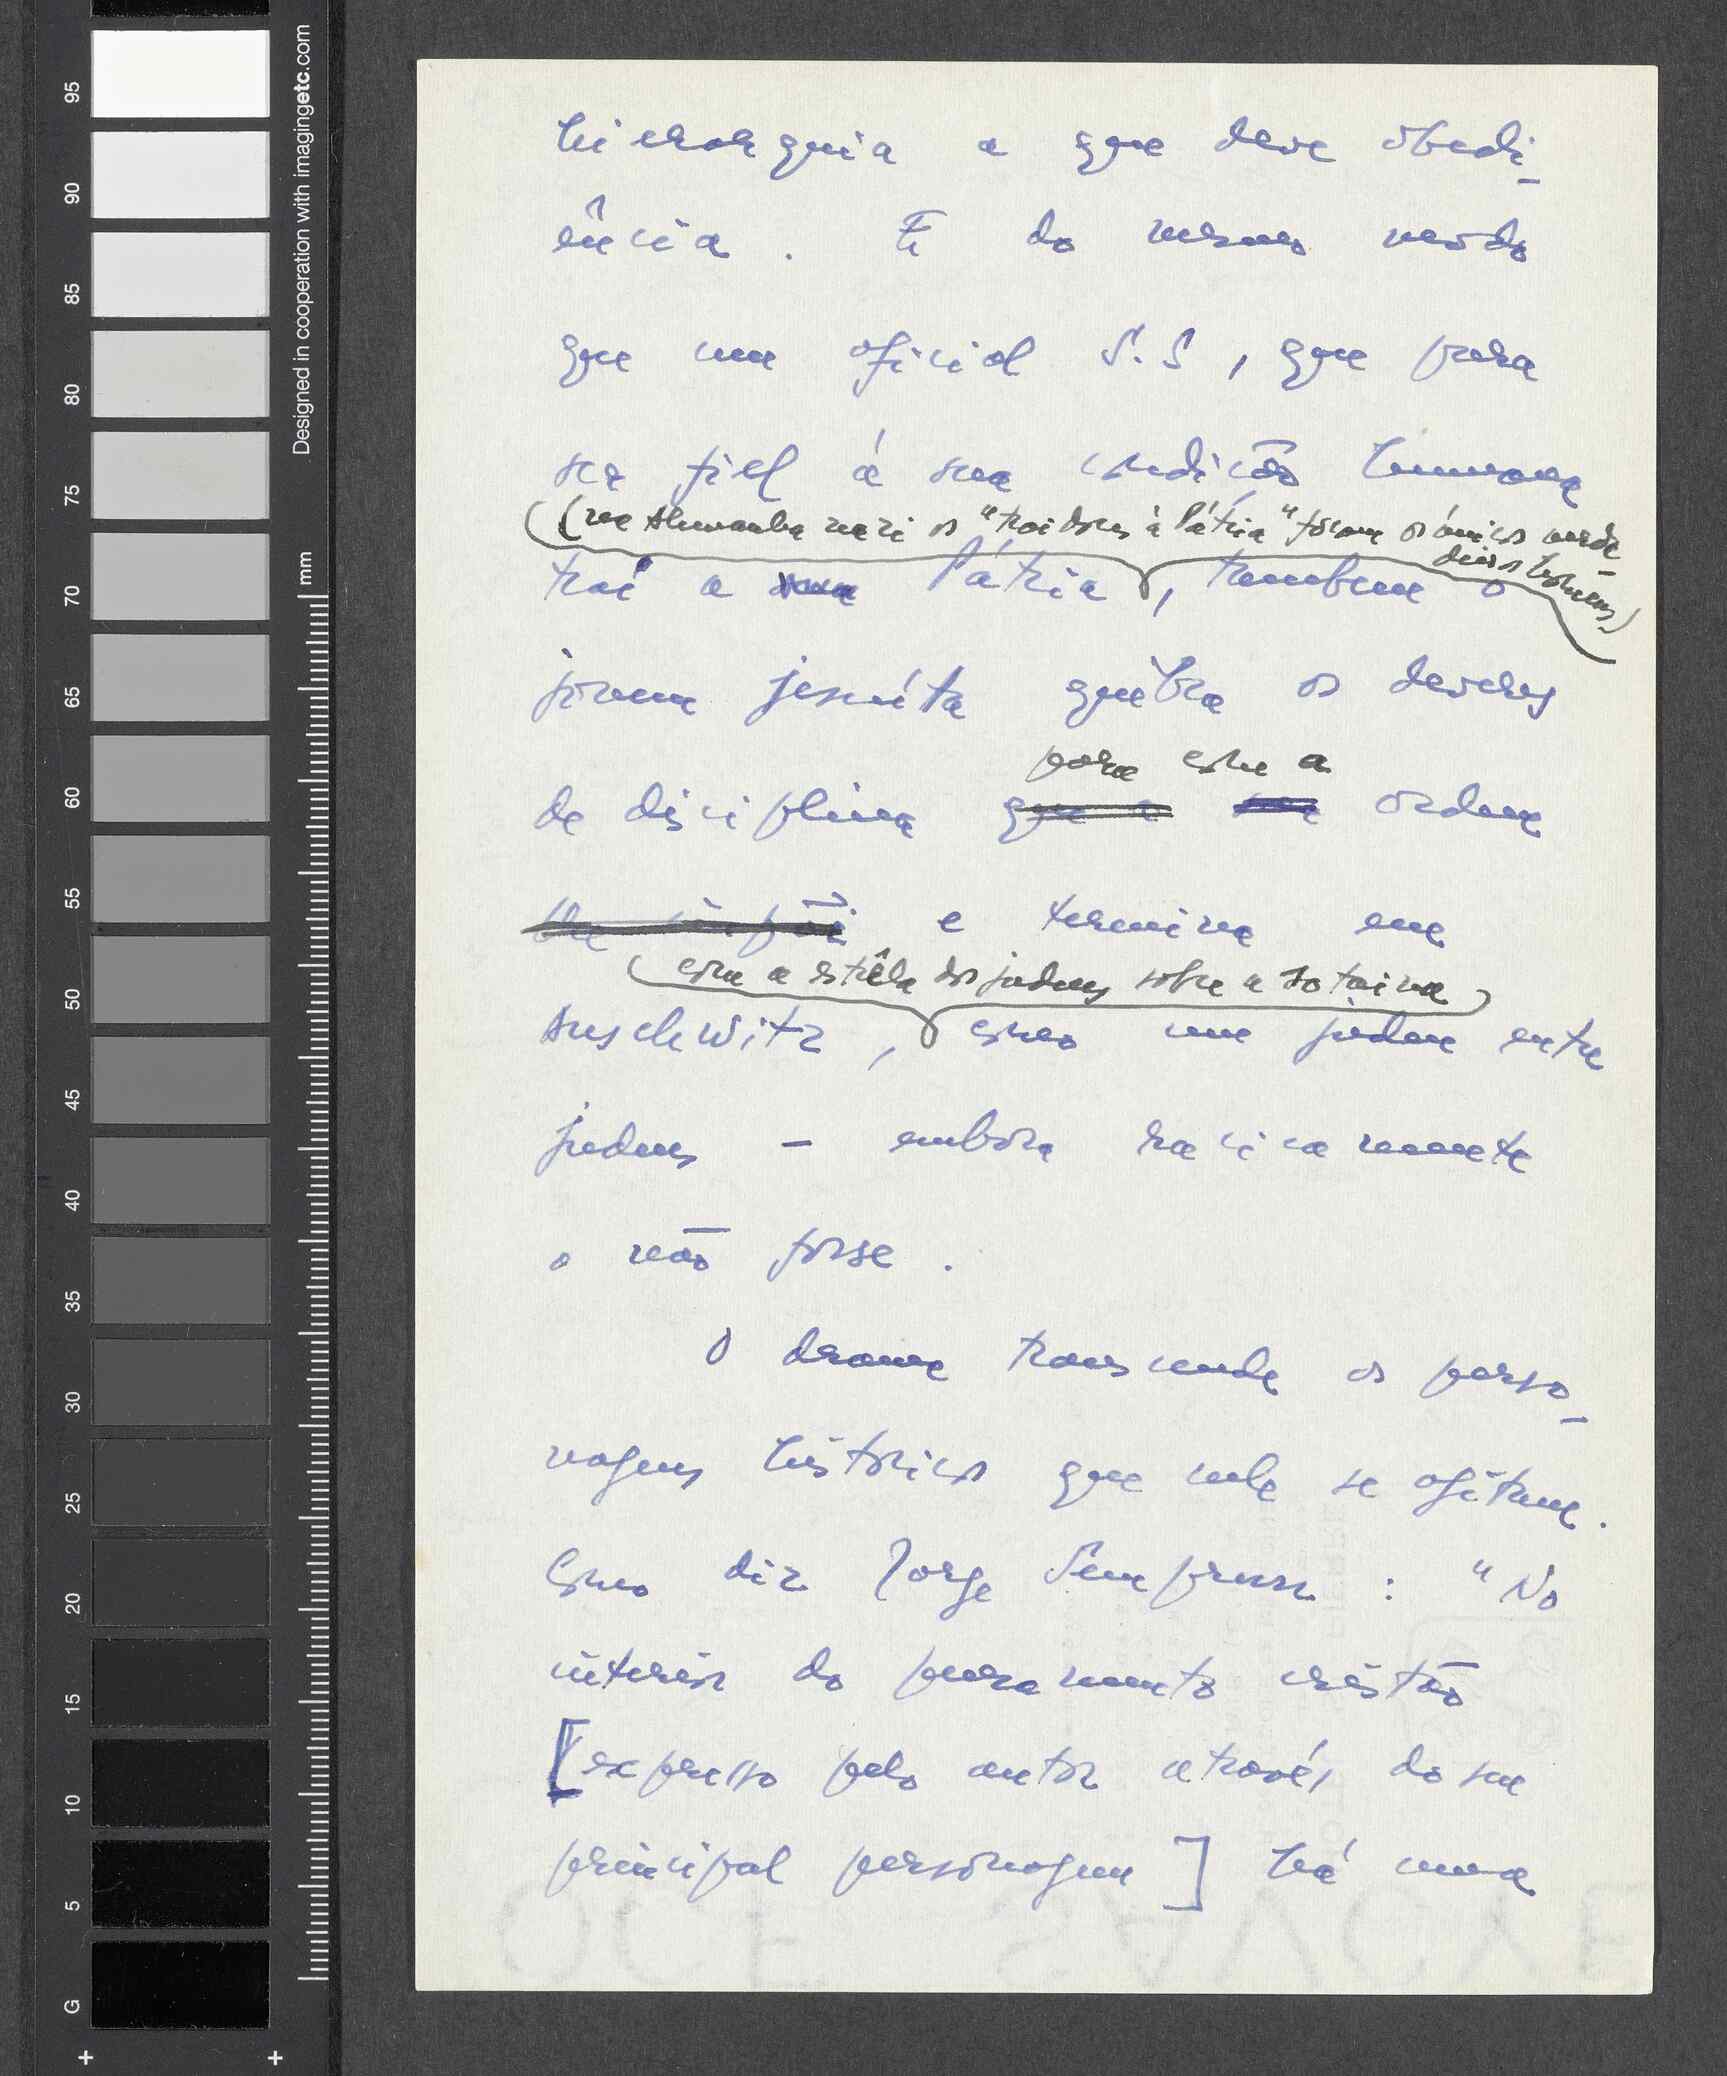 hierarquia a que deve obedi-
ência. E do mesmo modo
que um oficial S.S, que para
ser fiel à sua condição humana
((na Alemanha nazi os "traidores à Pátria" foram os únicos verda-
deiros homens)
trai a sua Pátria, tambem o
jovem jesuíta quebra os deveres
para com a
de disciplina que a sua ordem
lhe impõi e termina em
(com a estrêla dos judeus sobre a sotaina)
Auschwitz, como um judeu entre
judeus - embora racicamente
o não fosse.
O drama transcende os perso-
nagens históricos que nele se agitam.
Como diz Jorge Semprun: "No
interior do pensamento cristão
[expresso pelo autor através do seu
principal personagem] há uma
Designed in cooperation with imagingetc.com
mm
95
90
85
80
75
70
65
60
55
50
45
40
35
30
25
20
15
10
5
G